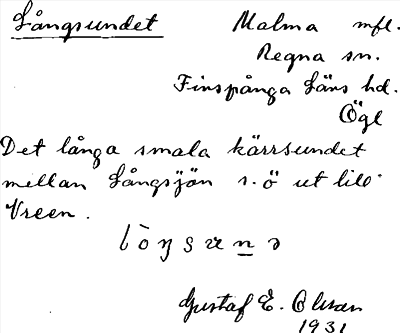 Långsundet
Malma mfl.
Regna sn.
Finspånga Läns hd.
Ögl
Det långa smala kärrsundet
mellan Långsjön s.ö ut till
Vreen.
Gustaf E. Olsson
1931